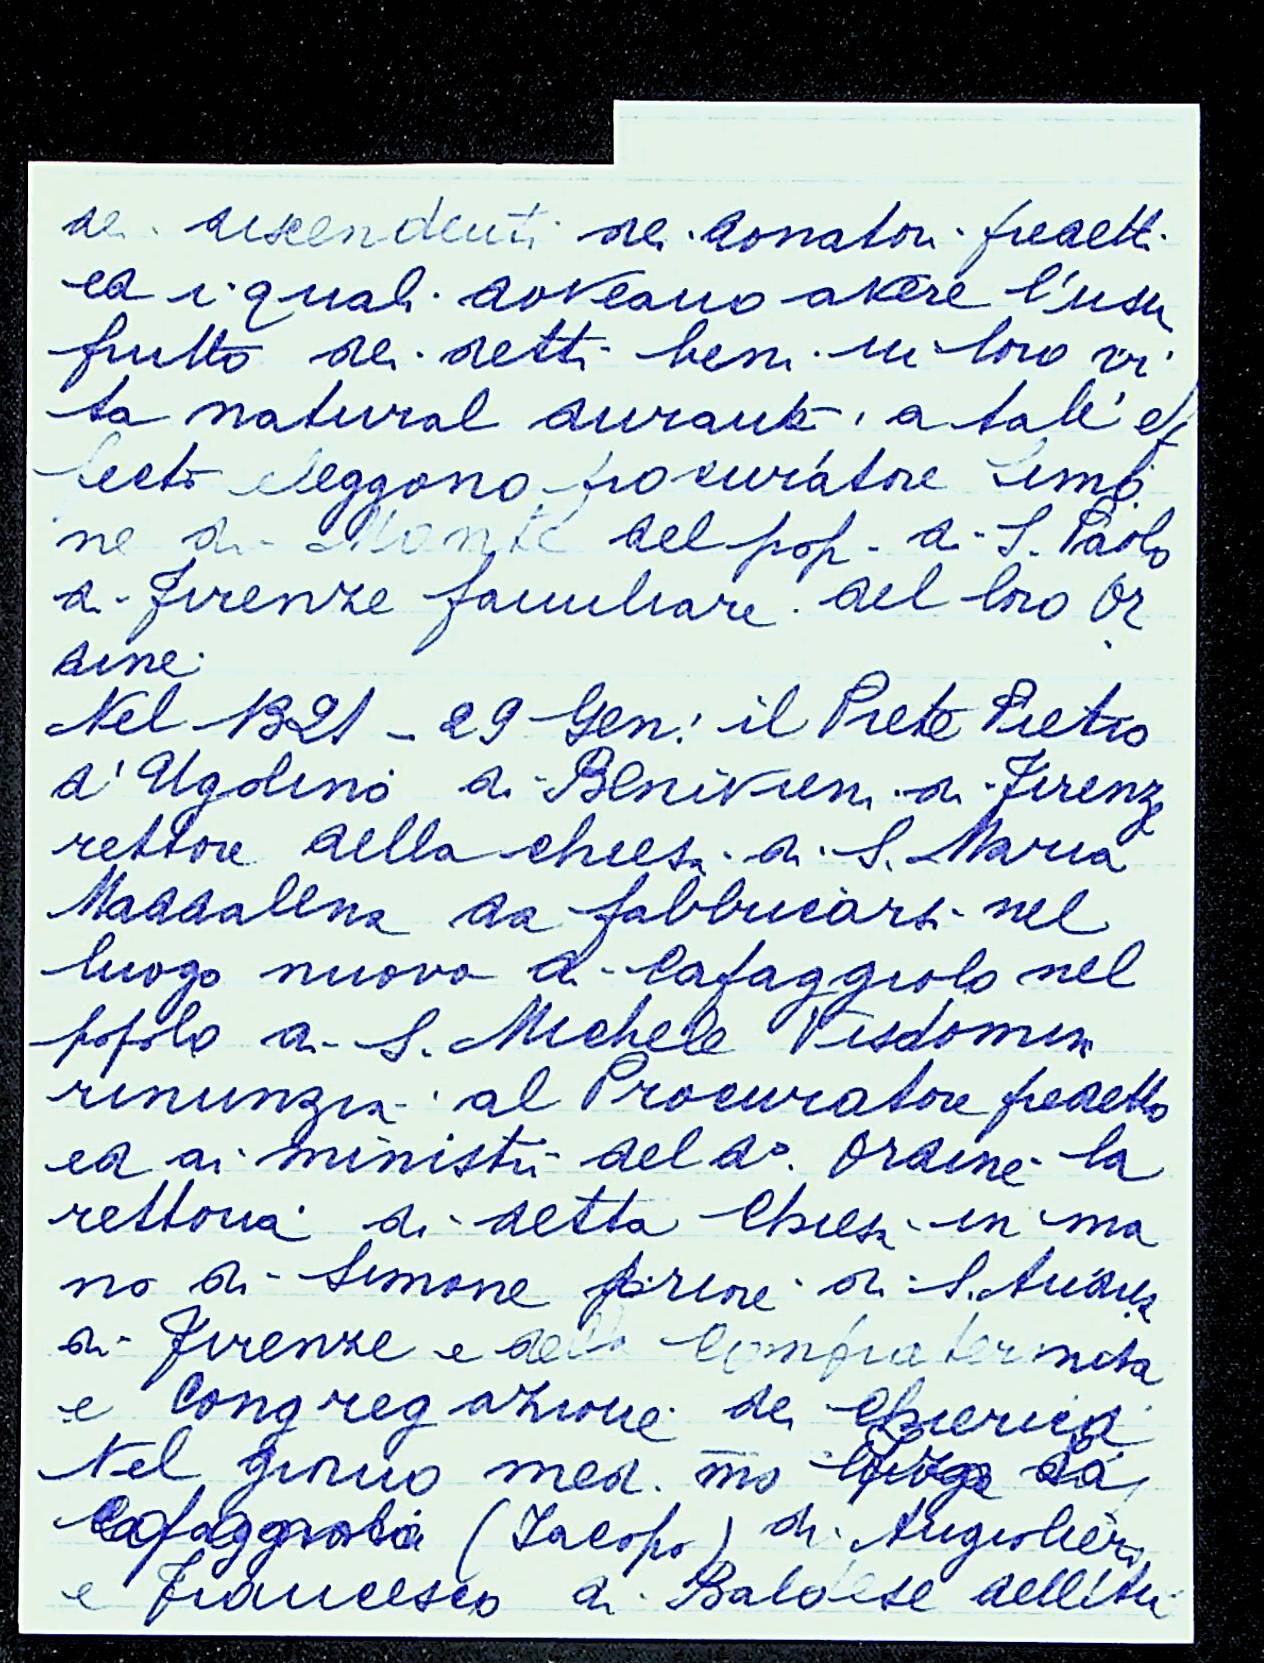 dei discendenti dei donatori predetti
ed i quali doveano avere l'usu
frutto dei detti beni in loro vi
ta natural durante, a tale ef
fecto eleggono procuratore Simo
ne di Monte del pop. di S. Paolo
di Firenze familiare del loro Or
dine.
Nel 1321 - 29 Gen: il Prete Pietro
d'Ugolino di Benivieni di Firenze
rettore della chiesa di S. Maria
Maddalena da fabbricarsi nel
luogo nuovo di Cafaggiolo nel
popolo di S. Michele Visdomini
rinunzia al Procuratore predetto
ed ai ministri del do. Ordine la
rettoria di detta Chiesa in ma
no di Simone priore di S. Andrea
di Firenze e della Confraternita
e Congregazione dei Chierici
Nel giorno med. mo da
(Iacopo) di Angiolieri
e Francesco di Baldese